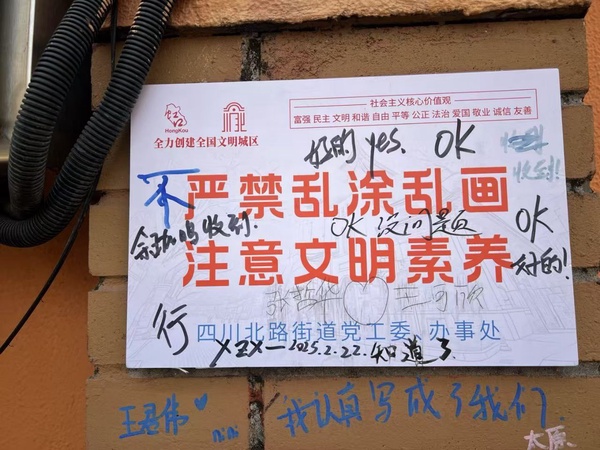 社会主义核心价值观
富强 民主 文明 和谐 自由 平等 公正 法治 爱国 敬业 诚信 友善
HongKou
全力创建全国文明城区
好的 yes. OK
收到!
不
严禁乱涂乱画
收到.
OK 没问题
OK
注意文明素养
对的!
行
四川北路街道党工委、办事处
XZX—2025.2.22.知道了
王君伟
我认真写成了我们.
太原